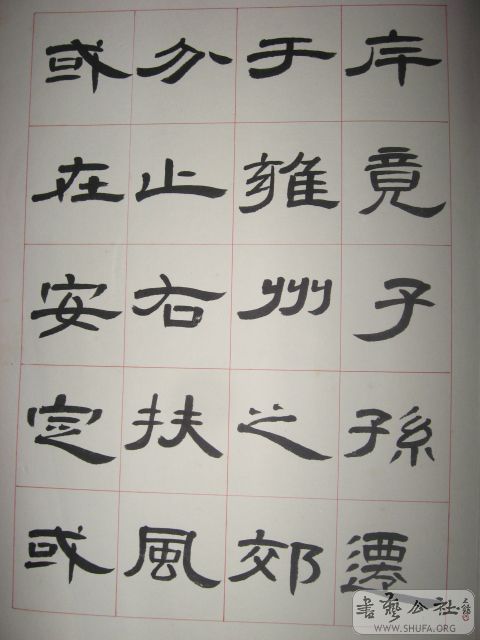 斥竟子孫遷
于雍州之郊
分止右扶風
或在安定或
書藝公社
WWW.SHUFA.ORG